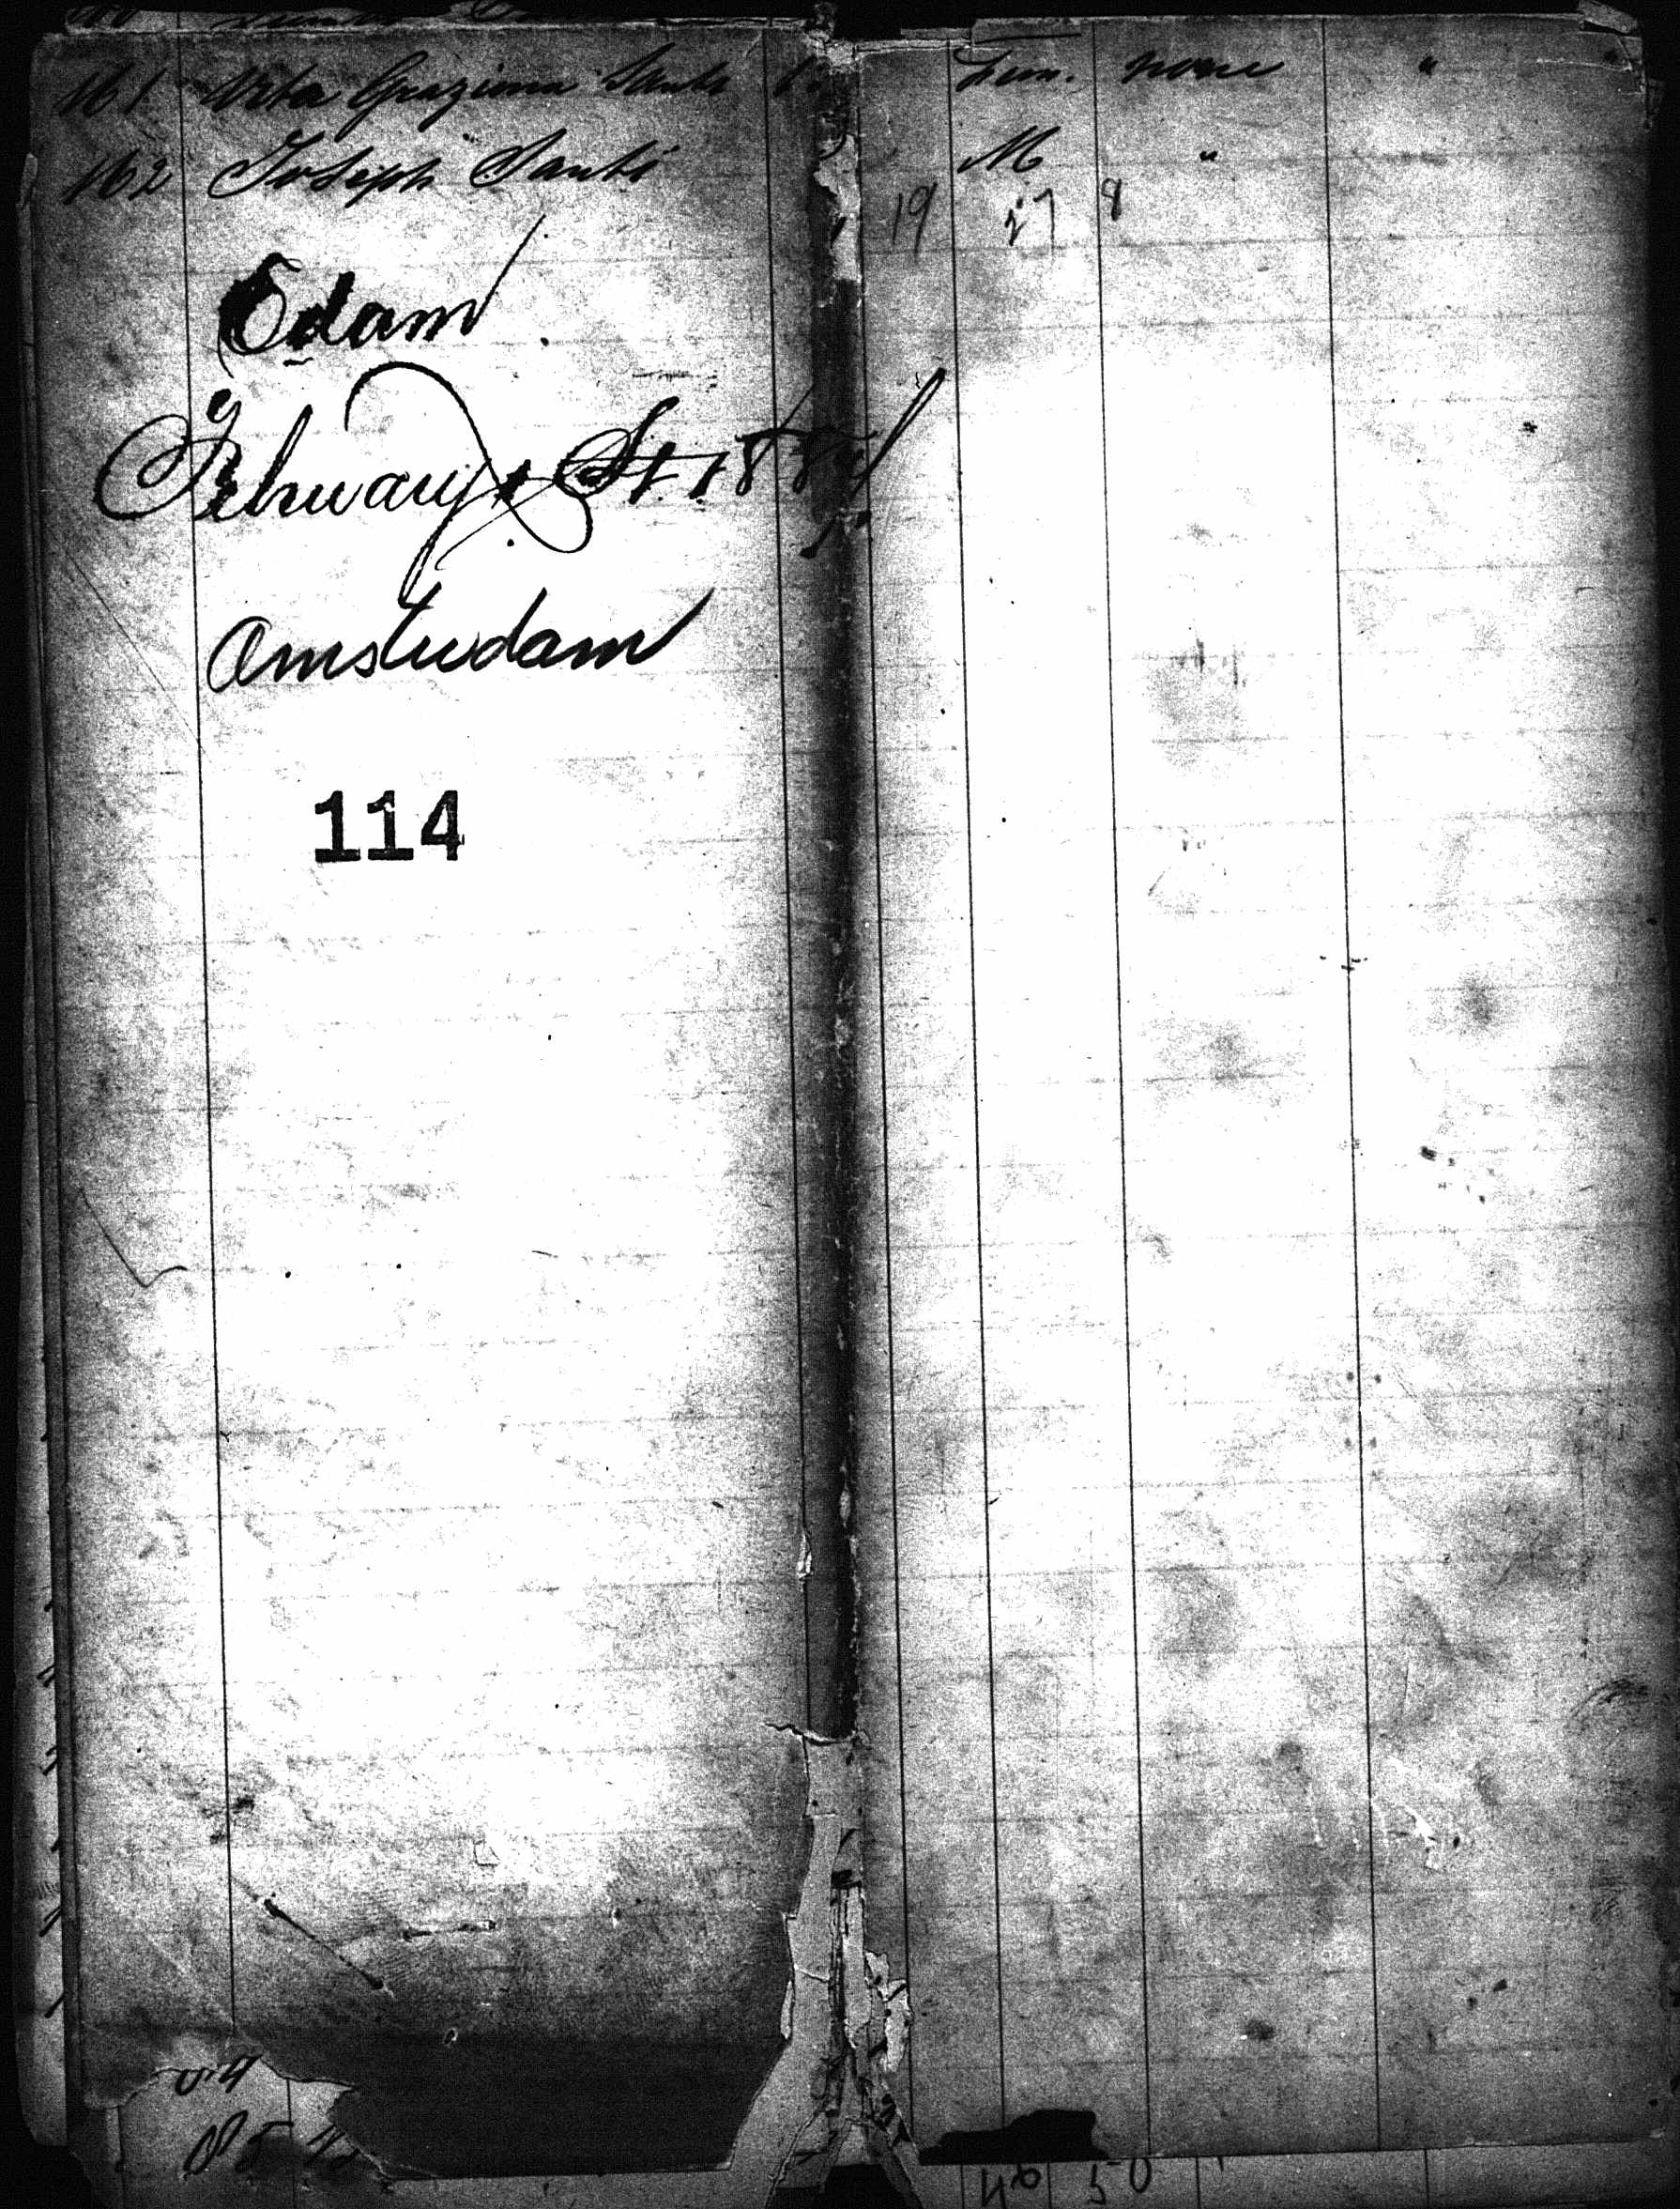 161 Graziana Santi Fem. none "
162 Joseph Santi M "
19 27 8
Edam
February 1 St. 1884
Amsterdam
114